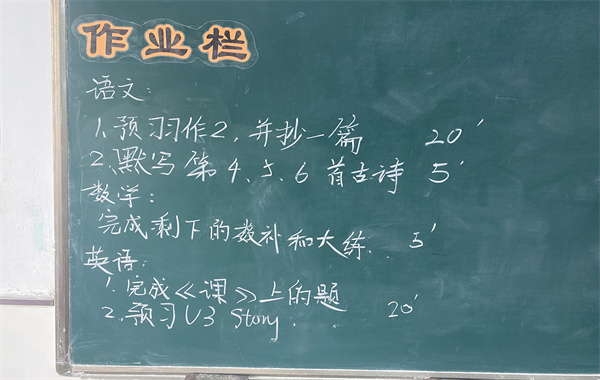 作业栏
语文：
1.预习习作2，并抄一篇 20′
2.默写第4、5、6首古诗 5′
数学：
完成剩下的数补和大练. 5′
英语：
1.完成《课》上的题
2.预习U3 Story. 20′